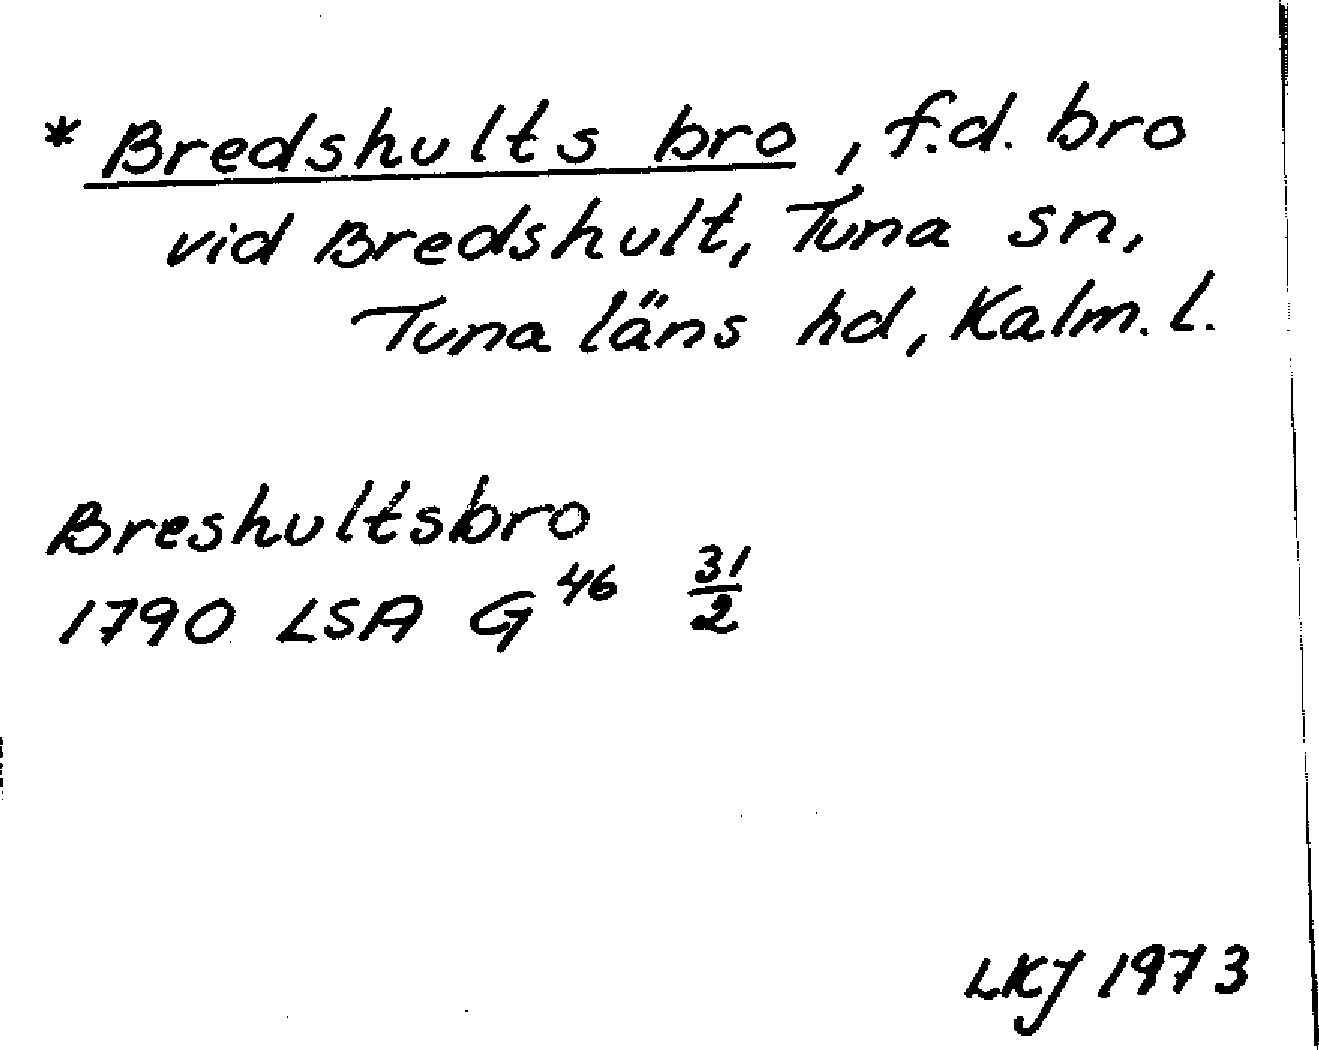 * Bredshults bro, f.d. bro
vid Bredshult, Tuna sn,
Tuna läns hd, Kalm. l.
Breshultsbro
1790 LSA G 46 31/2
LKJ 1973